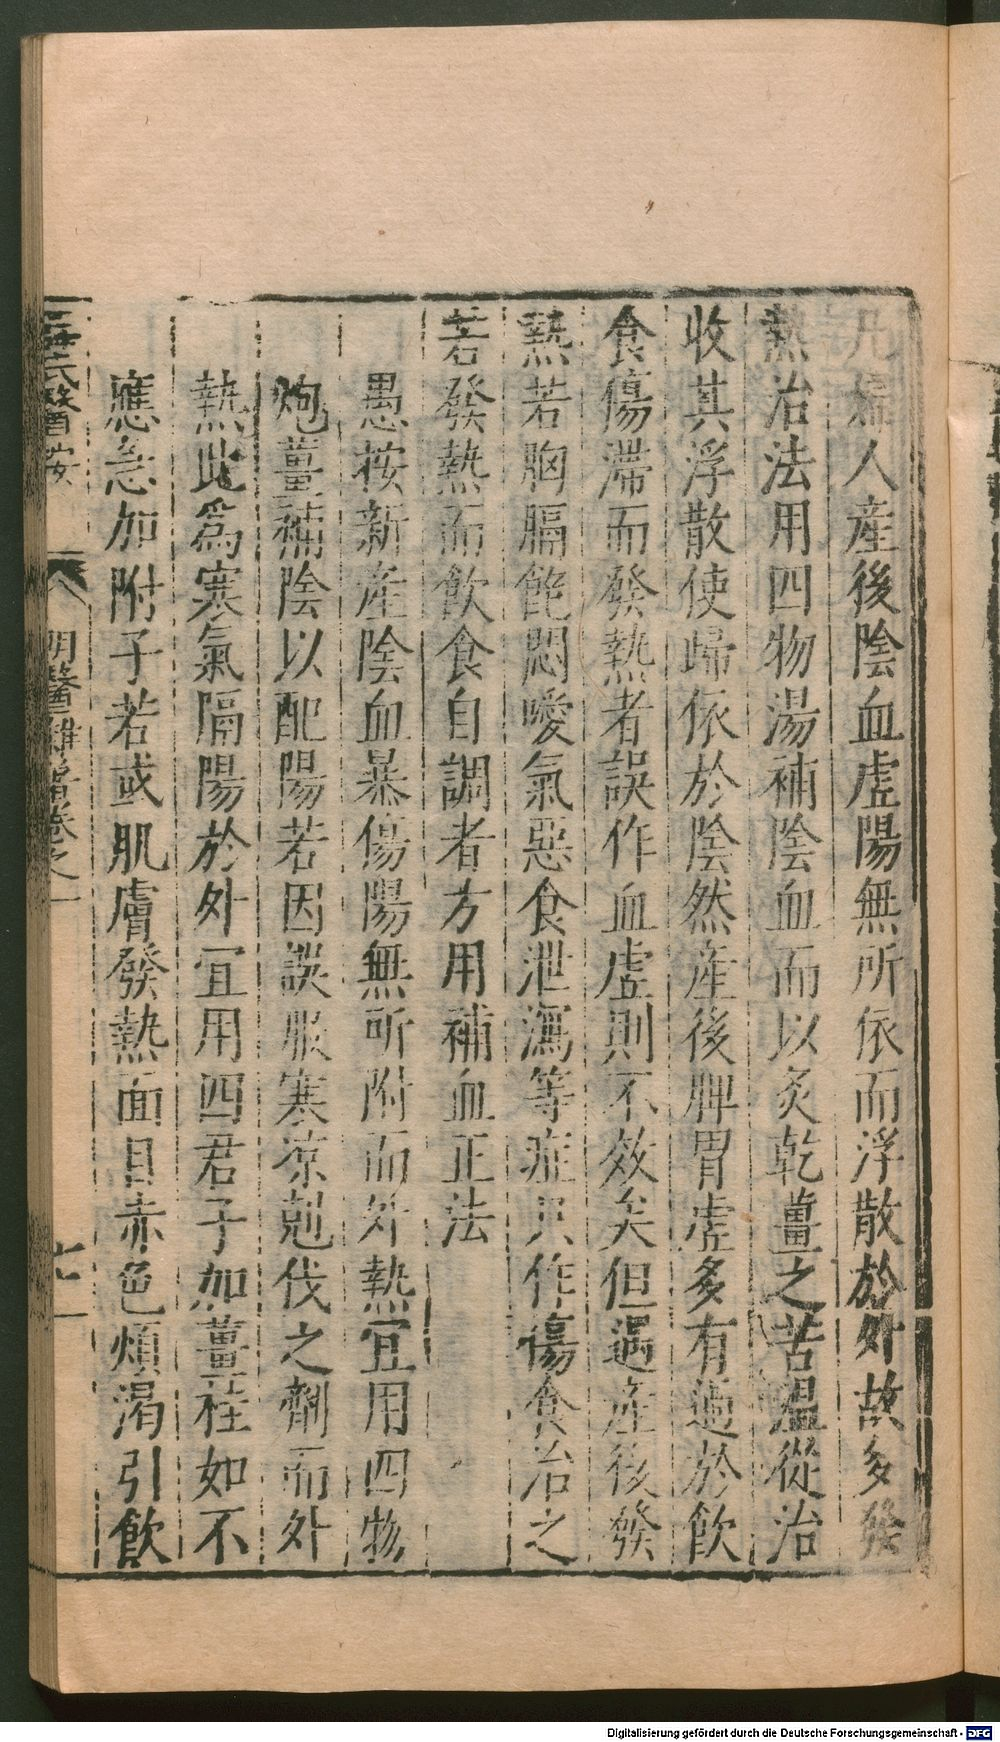 凡婦人産後陰血虛陽無所依而浮散於外故多發
熱治法用四物湯補陰血而以炙乾薑之苦溫從治
收其浮散使歸依於陰然産後脾胃虛多有過於飲
食傷滯而發熱者誤作血虛則不效矣但遇産後發
熱若胸膈飽悶噯氣惡食泄瀉等症只作傷食治之
若發熱而飲食自調者方用補血正法
愚按新産陰血暴傷陽無所附而外熱宜用四物
炮薑補陰以配陽若因誤服寒凉剋伐之劑而外
熱此爲寒氣隔陽於外宜用四君子加薑桂如不
應急加附子若或肌膚發熱面目赤色煩渴引飲
醫按 明醫雜著卷之一
Digitalisierung gefördert durch die Deutsche Forschungsgemeinschaft - DFG